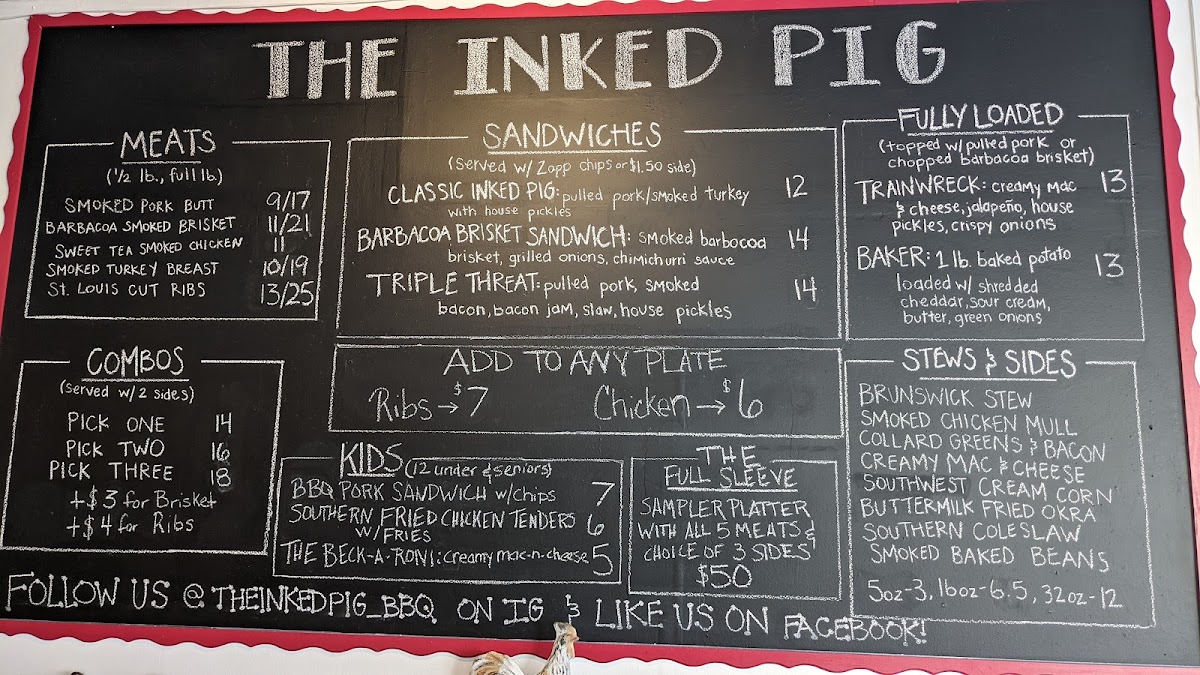 THE INKED PIG
MEATS
(1/2 lb., full lb.)
SMOKED PORK BUTT 9/17
BARBACOA SMOKED BRISKET 11/21
SWEET TEA SMOKED CHICKEN 11
SMOKED TURKEY BREAST 10/19
ST. LOUIS CUT RIBS 13/25
SANDWICHES
(Served w/ Zapp chips or $1.50 side)
CLASSIC INKED PIG: pulled pork/smoked turkey 12
with house pickles
BARBACOA BRISKET SANDWICH: smoked barbocoa 14
brisket, grilled onions, chimichurri sauce
TRIPLE THREAT: pulled pork, smoked 14
bacon, bacon jam, slaw, house pickles
FULLY LOADED
(topped w/ pulled pork or
chopped barbacoa brisket)
TRAINWRECK: creamy mac 13
& cheese, jalapeño, house
pickles, crispy onions
BAKER: 1 lb. baked potato 13
loaded w/ shredded
cheddar, sour cream,
butter, green onions
COMBOS
(served w/ 2 sides)
PICK ONE 14
PICK TWO 16
PICK THREE 18
+$3 for Brisket
+$4 for Ribs
ADD TO ANY PLATE
Ribs → $7 Chicken → $6
KIDS (12 under & seniors)
BBQ PORK SANDWICH w/chips 7
SOUTHERN FRIED CHICKEN TENDERS 6
W/FRIES
THE BECK-A-RONI: creamy mac-n-cheese 5
THE
FULL SLEEVE
SAMPLER PLATTER
WITH ALL 5 MEATS &
CHOICE OF 3 SIDES
$50
STEWS & SIDES
BRUNSWICK STEW
SMOKED CHICKEN MULL
COLLARD GREENS & BACON
CREAMY MAC & CHEESE
SOUTHWEST CREAM CORN
BUTTERMILK FRIED OKRA
SOUTHERN COLESLAW
SMOKED BAKED BEANS
5oz-3, 16oz-6.5, 32oz-12
FOLLOW US @ THEINKEDPIG_BBQ ON IG & LIKE US ON FACEBOOK!